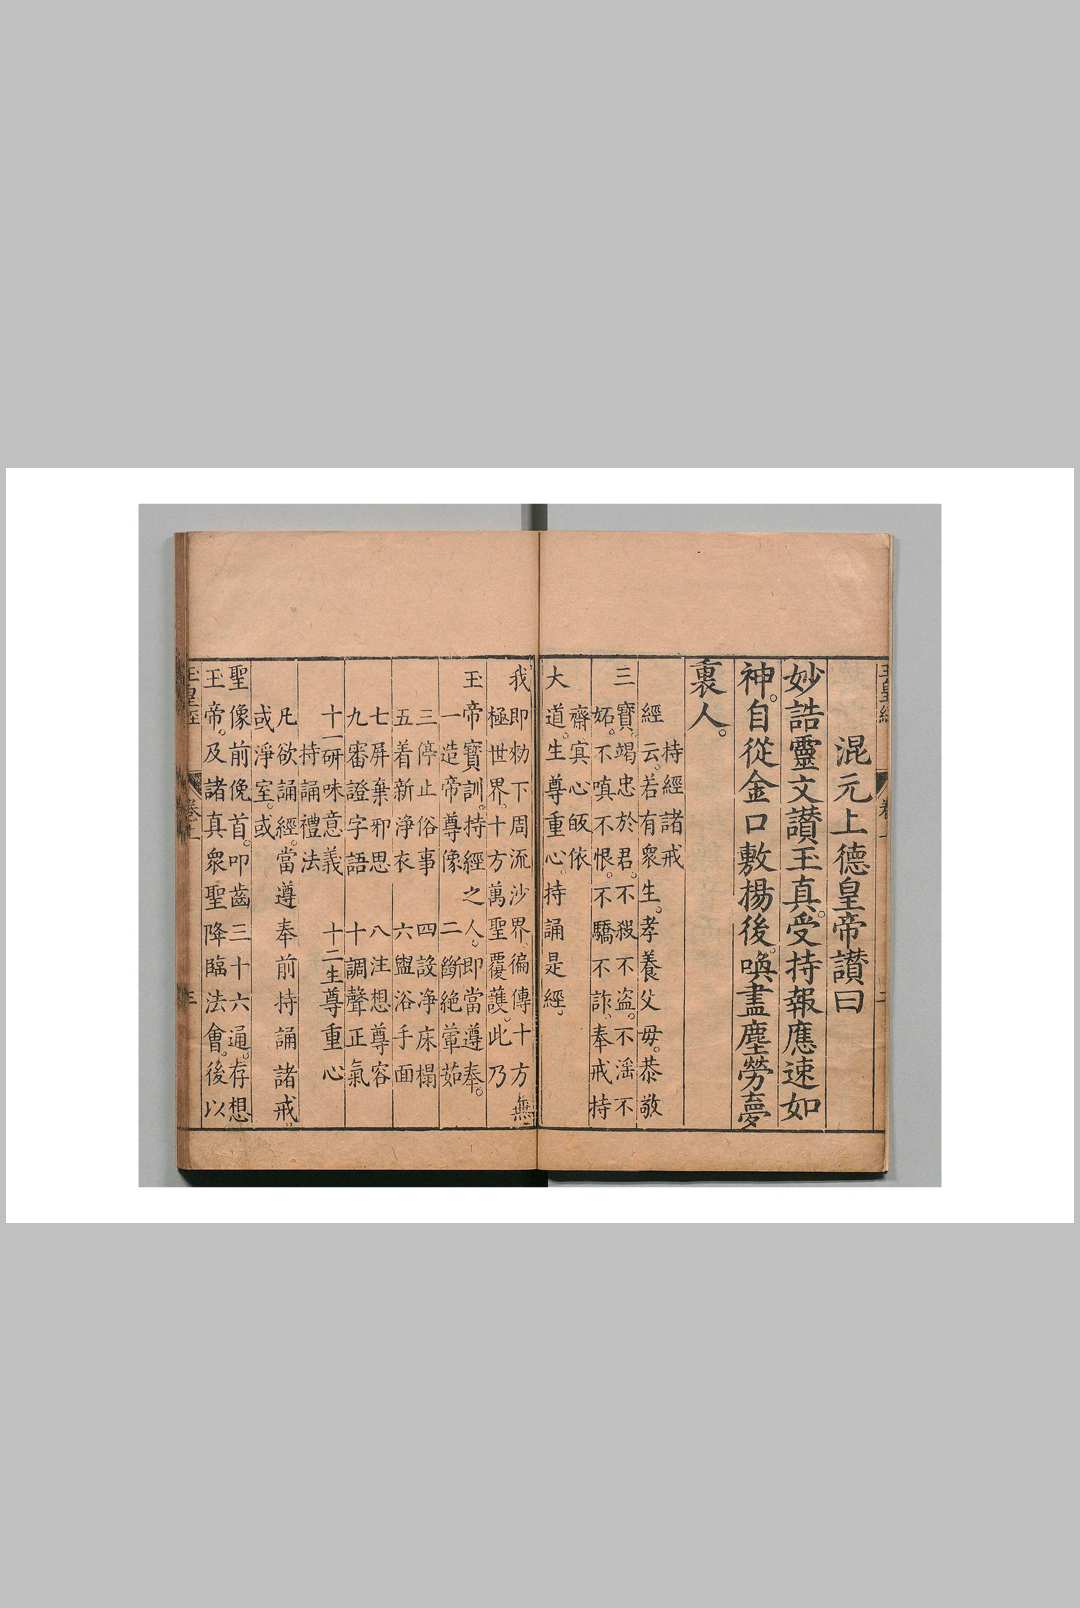 混元上德皇帝讃曰
妙誥靈文讃玉真。受持報應速如
神。自從金口敷揚後。喚盡塵勞夢
裏人。
持經諸戒
經云。若有衆生。孝養父母。恭敬
三寶。竭忠於君。不殺不盗。不淫不
妬。不嗔不恨。不驕不詐。奉戒持
齋。寘心皈依
大道。生尊重心。持誦是經。
我即勑下周流沙界。徧傳十方無
極世界。十方萬聖覆護。此乃
玉帝寳訓。持經之人。即當遵奉。
一造帝尊像 二斷絶葷茹
三停止俗事 四設净床榻
五着新淨衣 六盥浴手面
七屏棄邪思 八注想尊容
九審證字語 十調聲正氣
十一研味意義 十二生尊重心
持誦禮法
凡欲誦經。當遵奉前持誦諸戒。
或淨室。或
聖像前俛首。叩齒三十六通。存想
玉帝。及諸真衆聖降臨法會。後以
玉皇經 卷上 三